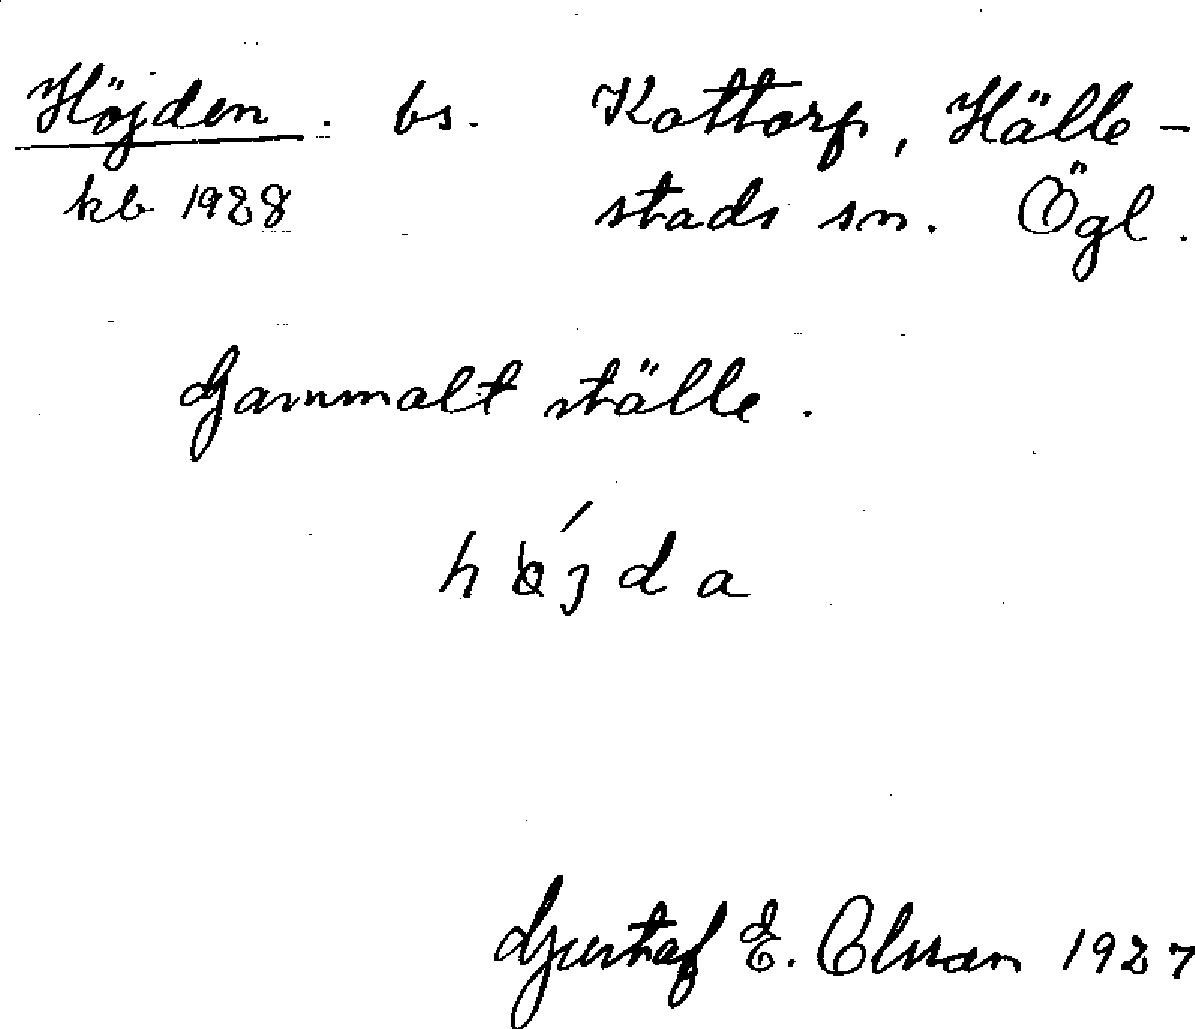 Höjden. bs. Kottorp, Hälle-
kb 1928 stads sn. Ögl.
Gammalt ställe.
Gustaf E. Olsson 1927